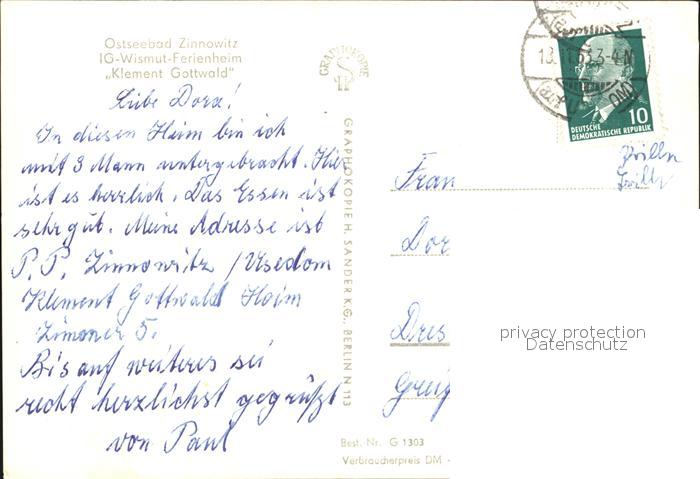 Ostseebad Zinnowitz
IG-Wismut-Ferienheim
„Klement Gottwald"
Liebe Dora!
In diesen Heim bin ich
mit 3 Mann untergebracht. Hier
ist es herrlich. Das Essen ist
sehr gut. Meine Adresse ist
P. P. Zinnowitz / Usedom
Klement Gottwald Heim
Zimmer 5.
Bis auf weiteres sei
recht herzlichst gegrüßt
von Paul
GRAPHOKOPIE
GRAPHOKOPIE H. SANDER K.G., BERLIN N 113
10
DEUTSCHE
DEMOKRATISCHE REPUBLIK
Frau
Dor
Dres
privacy protection
Datenschutz
Best.-Nr. G 1303
Verbraucherpreis DM -